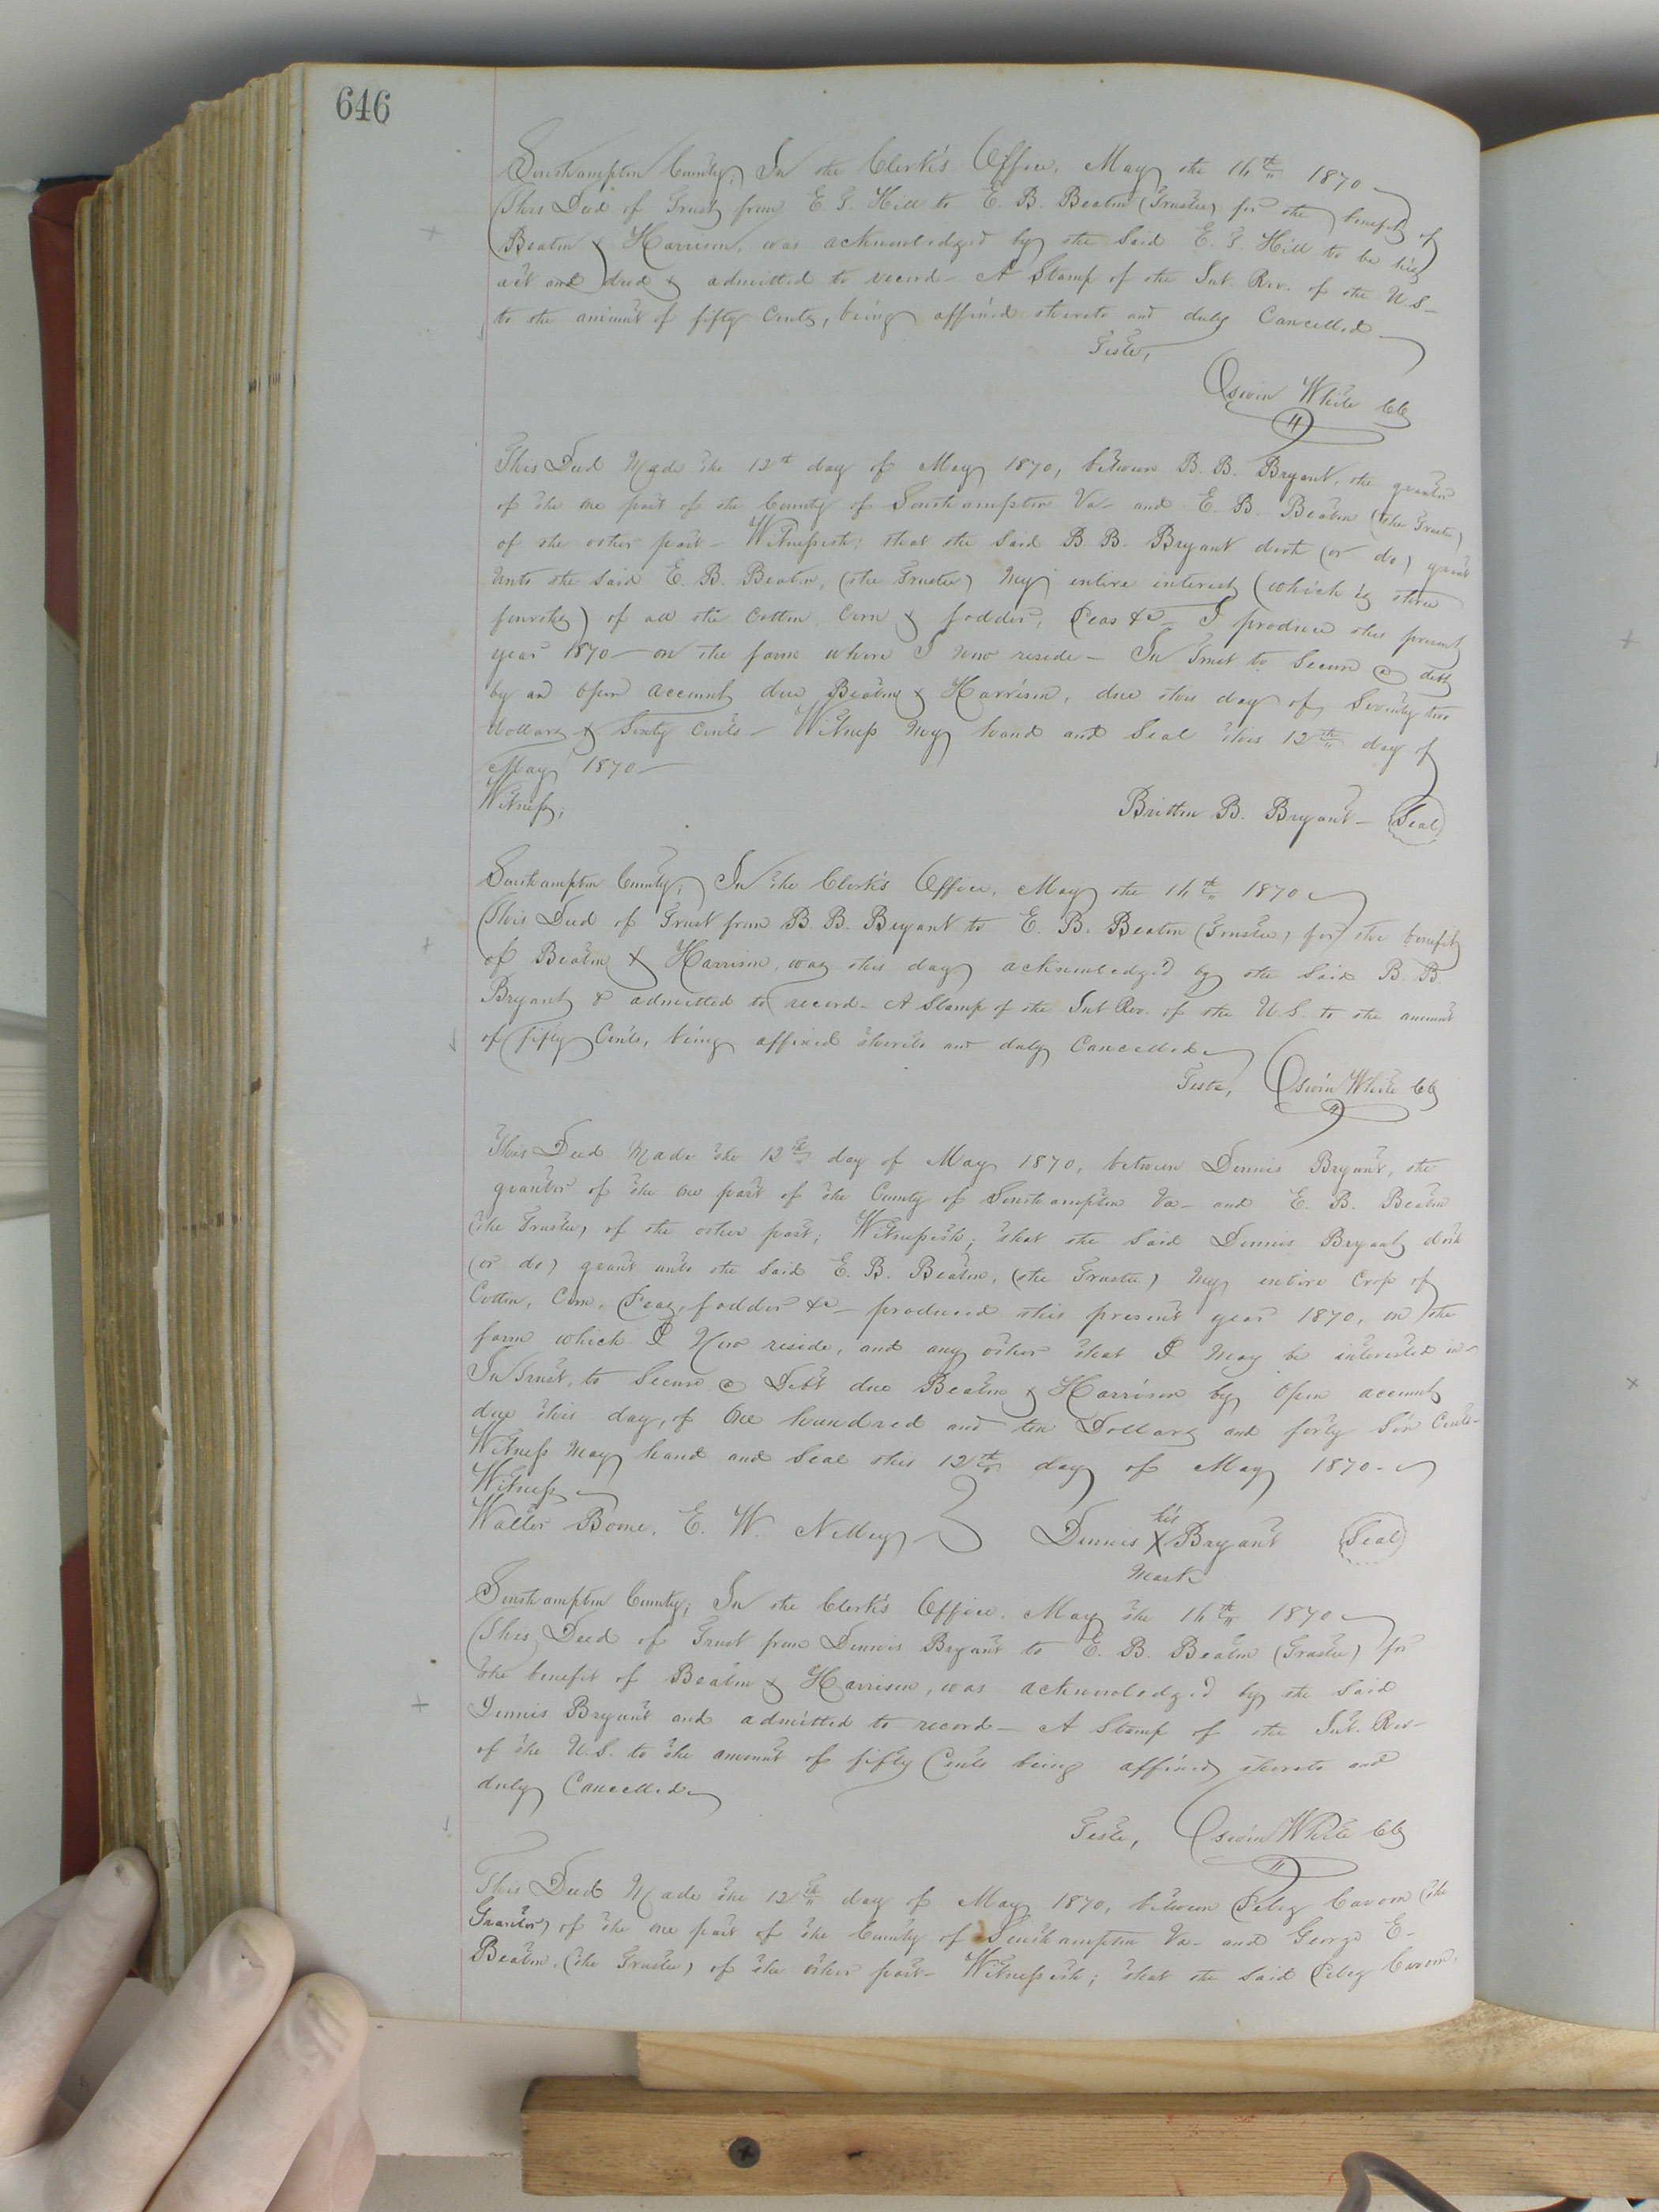 646
Southampton County; In the Clerk's Office, May the 14th 1870
This Deed of Trust from E. T. Hill to E. B. Beaton (Trustee) for the benefit of
Beaton & Harrison, was acknowledged by the said E. T. Hill to be his
act and deed & admitted to record - A Stamp of the Int. Rev. of the U.S-
to the amount of fifty Cents, being affixed thereto and duly Cancelled
Teste,
Oswin White Clk
This Deed Made the 12th day of May 1870, between B. B. Bryant, the grantor
of the one part of the County of Southampton Va- and E. B. Beaton (the Trustee)
of the other part - Witnesseth: that the Said B. B. Bryant doth (or do) grant
Unto the Said E. B. Beaton, (the Trustee) My entire interest (which is three
fourths) of all the Cotton Corn & fodder, Peas &c - I produce this present
year 1870 - on the farm where I now reside - In Trust to Secure a debt
by an Open account due Beaton & Harrison, due this day of Seventy two
dollars & Sixty Cents - Witness My hand and Seal this 12th day of
May 1870 -
Witness;
Britton B. Bryant - Seal
Southampton County; In the Clerk's Office, May the 14th 1870
This Deed of Trust from B. B. Bryant to E. B. Beaton (Trustee) for the benefit
of Beaton & Harrison, was this day acknowledged by the Said B. B.
Bryant & admitted to record - A Stamp of the Int Rev. of the U.S. to the amount
of fifty Cents, being affixed thereto and duly Cancelled
Teste, Oswin White Clk
This Deed Made the 12th day of May 1870, between Dennis Bryant, the
grantor of the one part of the County of Southampton Va- and E. B. Beaton
(the Trustee) of the other part; Witnesseth; that the Said Dennis Bryant doth
(or do) grant unto the Said E. B. Beaton, (the Trustee) My entire Crop of
Cotton, Corn, Peas, fodder &c - produced this present year 1870, on the
farm which I Now reside, and any other that I May be interested in -
In Trust, to Secure a Debt due Beaton & Harrison by Open account
due this day, of One hundred and ten Dollars and forty Six Cents-
Witness May hand and Seal this 12th day of May 1870 -
Witness
Walter Boone, E. W. Dennis his X Bryant Seal
Mark
Southampton County; In the Clerk's Office. May the 14th 1870
This Deed of Trust from Dennis Bryant to E. B. Beaton (Trustee) for
the benefit of Beaton & Harrison, was acknowledged by the Said
Dennis Bryant and admitted to record - A Stamp of the Int. Rev-
of the U.S. to the amount of fifty Cents being affixed thereto and
duly Cancelled
Teste, Oswin White Clk
This Deed Made the 12th day of May 1870, between (the
Grantor) of the one part of the County of Southampton Va- and George E-
Beaton, (the Trustee) of the other part - Witnesseth; that the Said